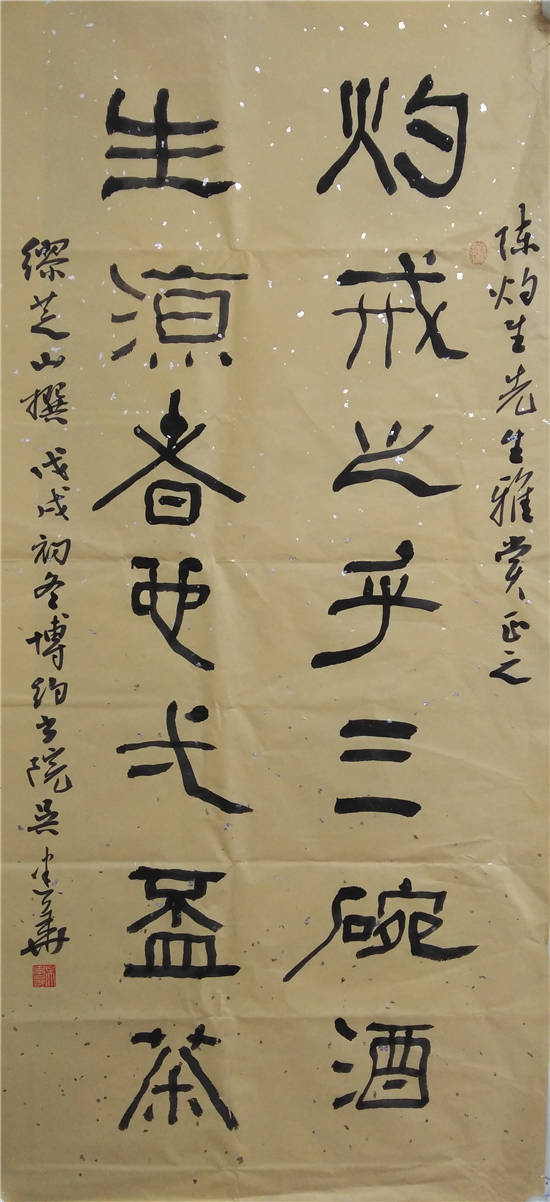 陈灼生先生雅赏正之
灼戒之乎三碗酒
生者也弌盃茶
缪芝山撰 戊戌初冬博约书院吴華